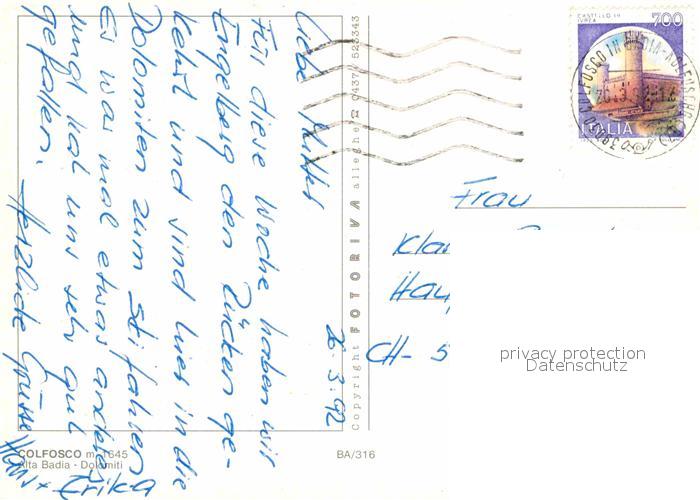 Liebe
Für diese Woche haben wir
Engelberg den Rücken ge-
kehrt und sind hier in die
Dolomiten zum Skifahren
Es was mal etwas anderes
und hat uns sehr gut
gefallen. Herzliche Grüsse
Hans + Erika
26.3.92
Copyright FOTORIVA alleghe ☎ 0437/523343
CASTELLO DI
IVREA
700
ITALIA
39030 COLFOSCO IN BADIA
Frau
Kla
Hau
CH- 5
privacy protection
Datenschutz
COLFOSCO m. 1645
Alta Badia - Dolomiti
BA/316